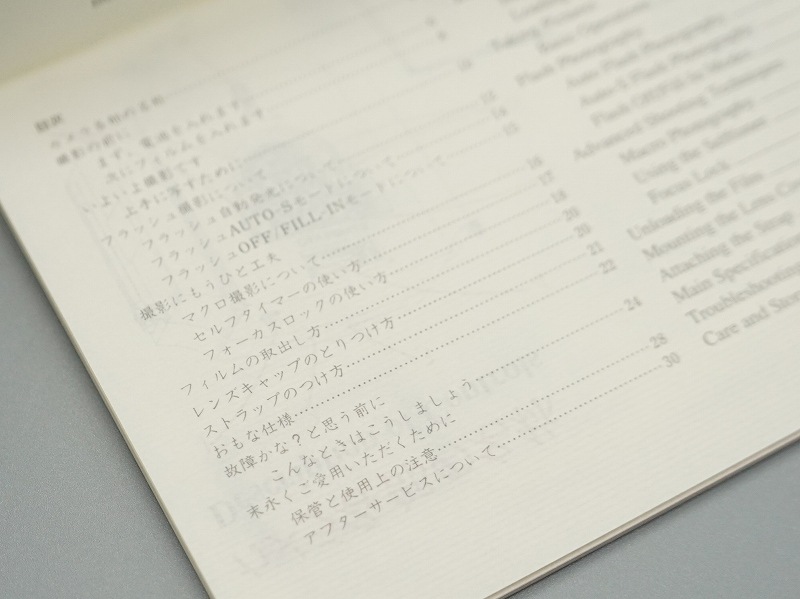 目次
カメラ各部の名称
撮影の前に
まず、電池を入れます
次にフィルムを入れます
いよいよ撮影です
上手に写すために
フラッシュ撮影について
フラッシュ自動発光について
フラッシュAUTO-Sモードについて
フラッシュOFF/FILL-INモードについて
撮影にもうひと工夫
マクロ撮影について 16
セルフタイマーの使い方 17
フォーカスロックの使い方 18
フィルムの取出し方 20
レンズキャップのとりつけ方 20
ストラップのつけ方 21
おもな仕様 22
故障かな？と思う前に
こんなときはこうしましょう 24
末永くご愛用いただくために
保管と使用上の注意 28
アフターサービスについて 30
Taking Pictures
Flash Photography
Auto Flash Photography
Auto-S Flash Photography
Advanced Shooting Techniques
Macro Photography
Using the Selftimer
Focus Lock
Unloading the Film
Mounting the Lens
Attaching the Strap
Main Specification
Troubleshooting
Care and Stor